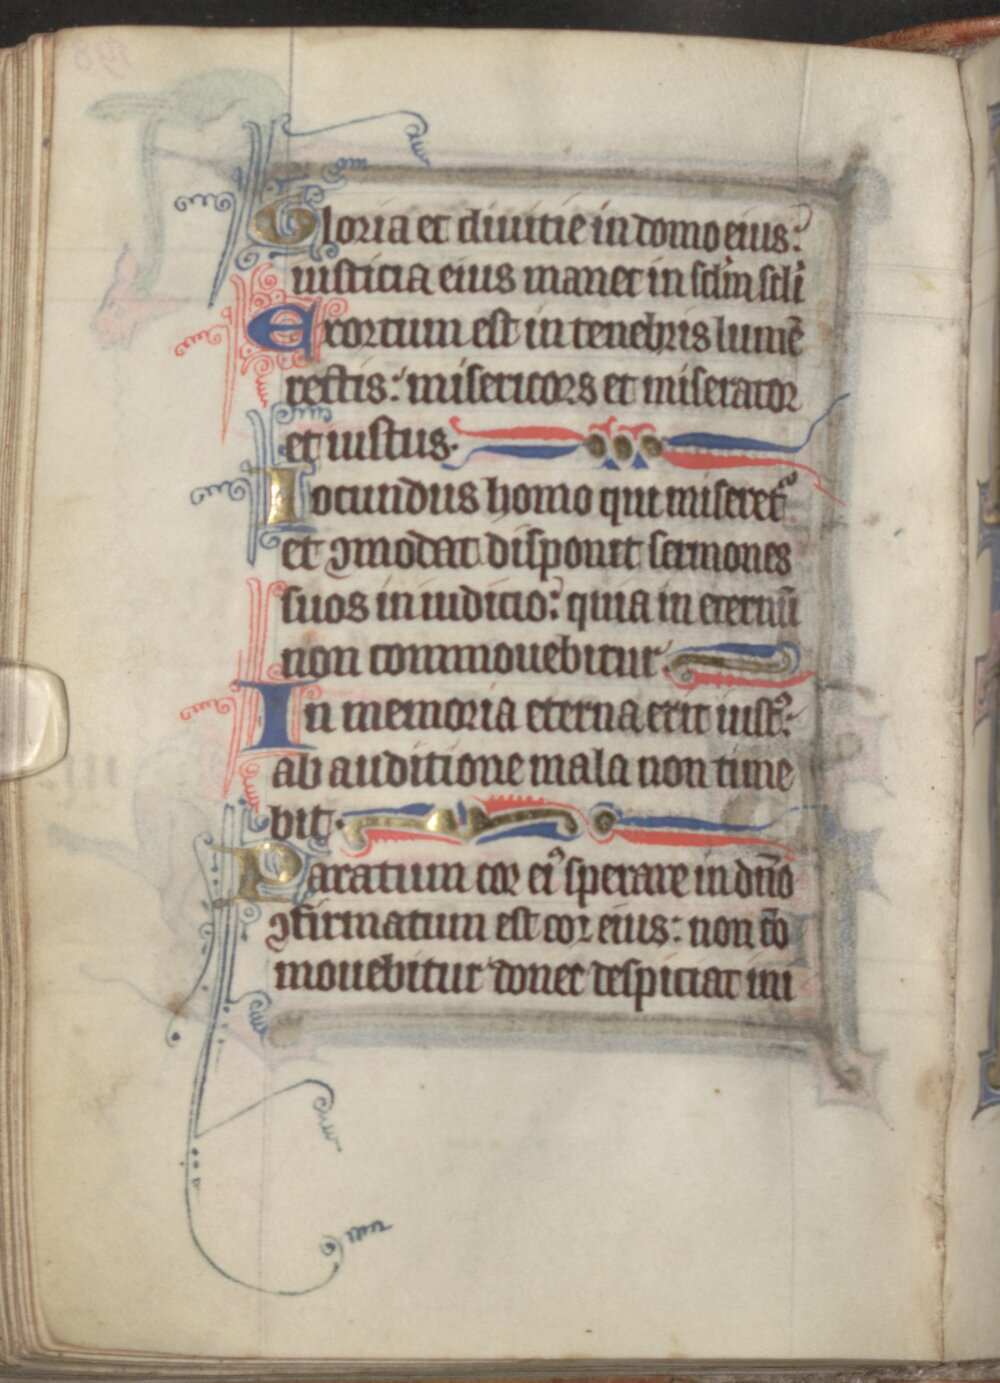 Gloria et diuitie in domo eius:
iusticia eius manet in sclm̄ scl̄i
Exortum est in tenebris lumē
rectis: misericors et miserator
et iustus.
Iocundus homo qui miseret᷑
et ꝯmodat disponit sermones
suos in iudicio: quia in eternū
non commouebitur.
In memoria eterna erit iustꝰ:
ab auditione mala non time
bit.
Paratum cor eiꝰ sperare in dn̄o
ꝯfirmatum est cor eius: non cō
mouebitur donec despiciat ini